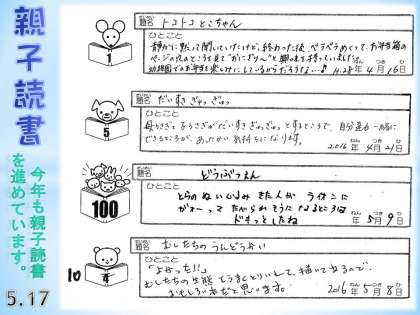 親子読書
今年も親子読書
を進めています。
5.17
1
題名 トコトコとこちゃん
ひとこと
静かに黙って聞いていたけど、終わった後、ペラペラめくって、お弁当箱の
ページの穴のところを見て"おにぎり〜"と
幼稚園でのお弁当を楽しみにしているからだろうな…♪
H.28年4月16日
5
題名 だいすき ぎゅっ ぎゅっ
ひとこと
母うさぎと子うさぎがだいすきぎゅっぎゅっとするところで、自分達も一緒に
できるところが、あったかい気持ちになります。
2016年4月21日
100
題名 どうぶつえん
ひとこと
とらのぬいぐるみ きた人が ライオンに
がおーって たべられそうに なるところは
ドキッとしたね
年5月9日
10
4
題名 むしたちのうんどうかい
ひとこと
「よかった!!」
むしたちの生態をうまくとりいれて、描いてあるので
おもしろい本だと思います。
2016年5月8日